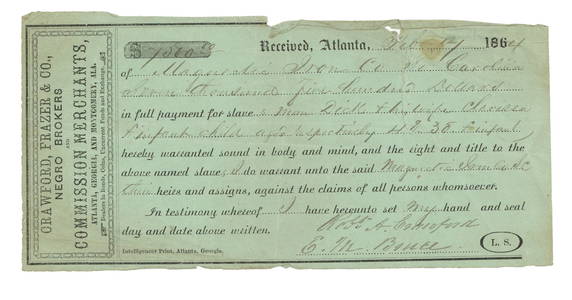 CRAWFORD, FRAZER & CO.,
NEGRO BROKERS
AND
COMMISSION MERCHANTS,
ATLANTA, GEORGIA, AND MONTGOMERY, ALA.
Dealers in Bonds, Coins, Uncurrent Funds and Exchange.
$7500.00 Received, Atlanta, 1864
of Iron Co No Carolina
Seven thousand five hundred Dollars
in full payment for slaves man Dick & his wife
& infant child aged respectively 47, 38 & infant
hereby warranted sound in body and mind, and the right and title to the
above named slaves I do warrant unto the said
their heirs and assigns, against the claims of all persons whomsoever.
In testimony whereof I have hereunto set my hand and seal
day and date above written.
Robt. A. Crawford
E. M. Bruce
L. S.
Intelligencer Print, Atlanta, Georgia.